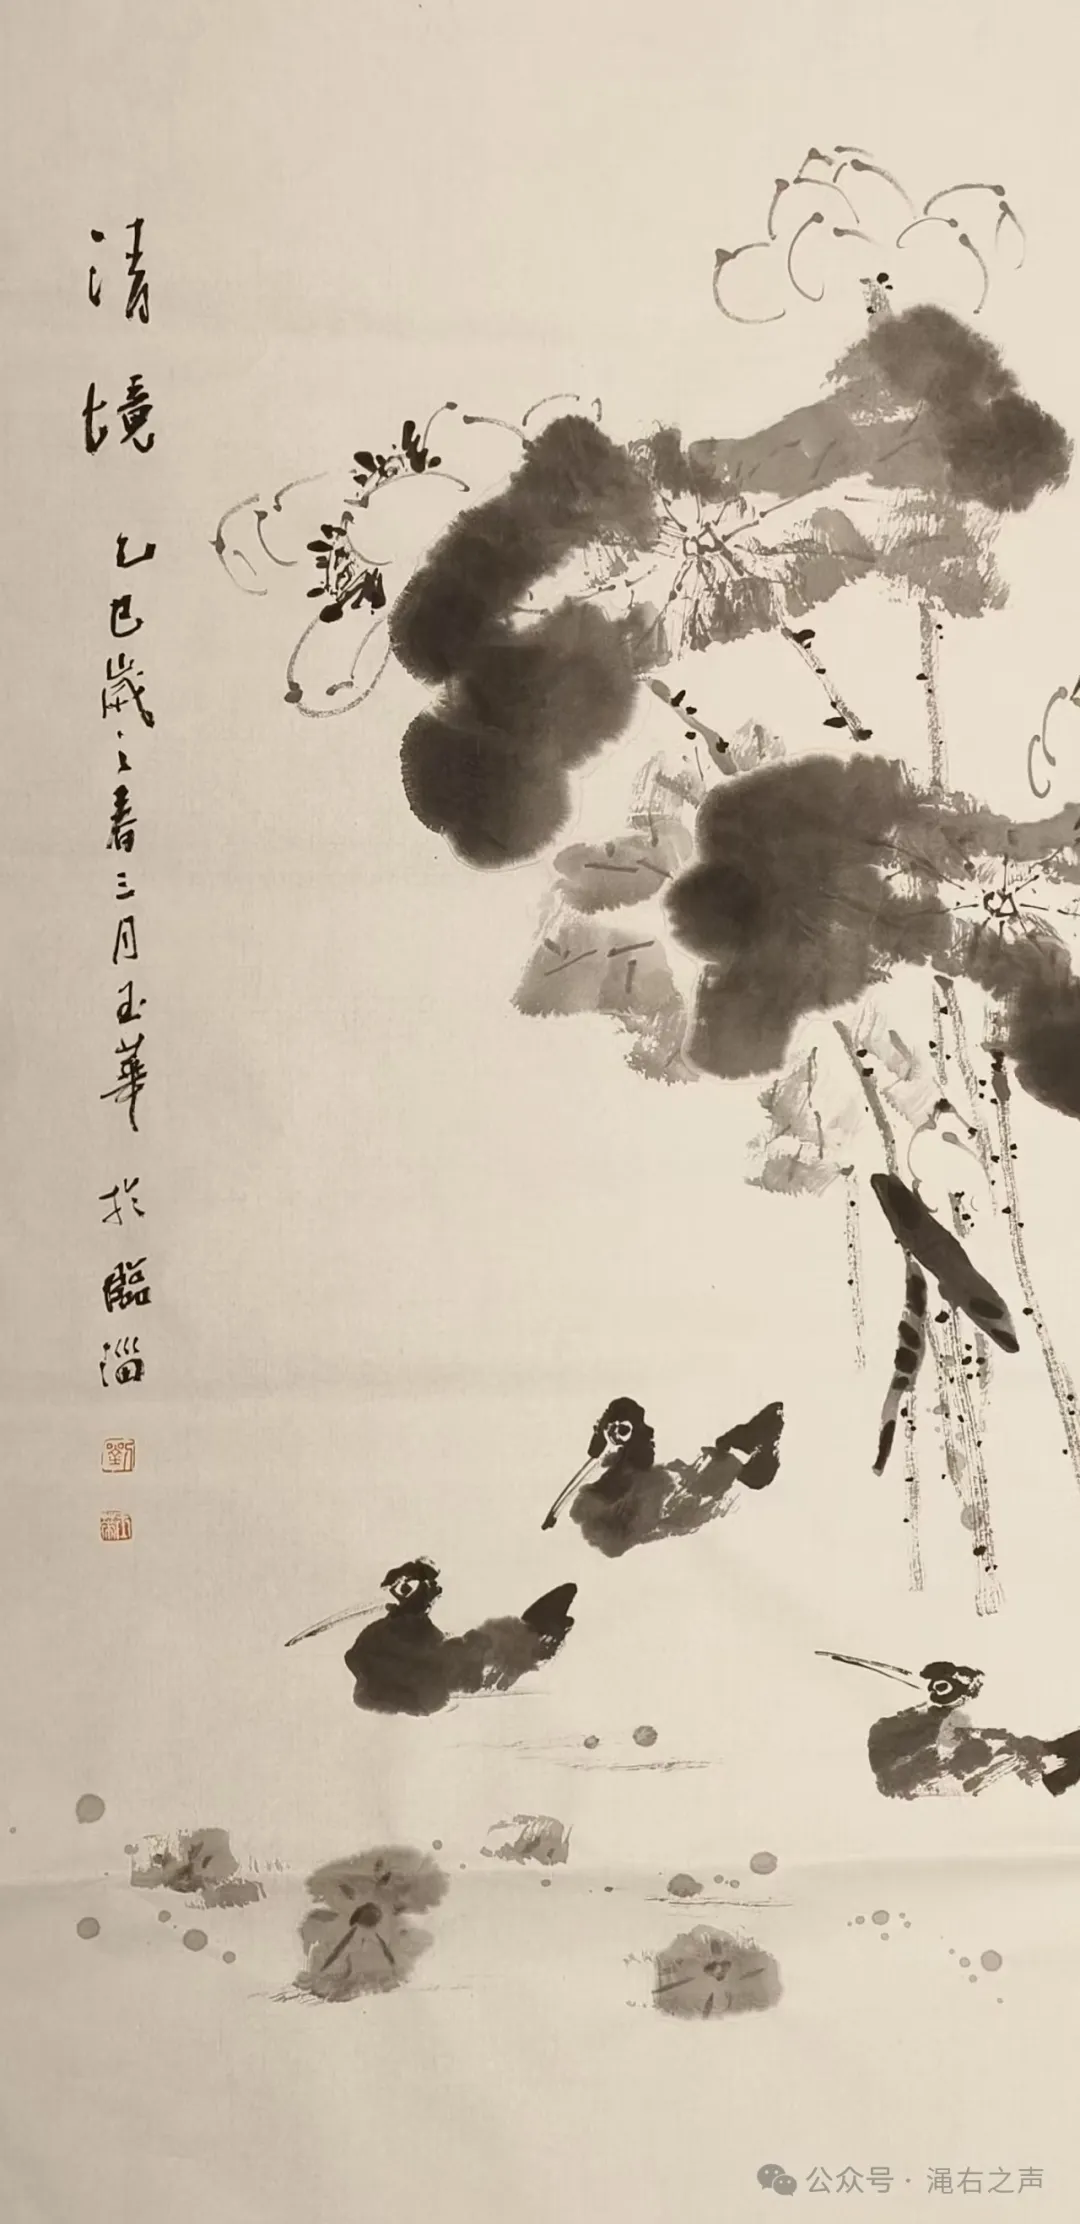 清境
乙巳歲之春三月玉華於臨淄
劉
公众号 · 渑右之声